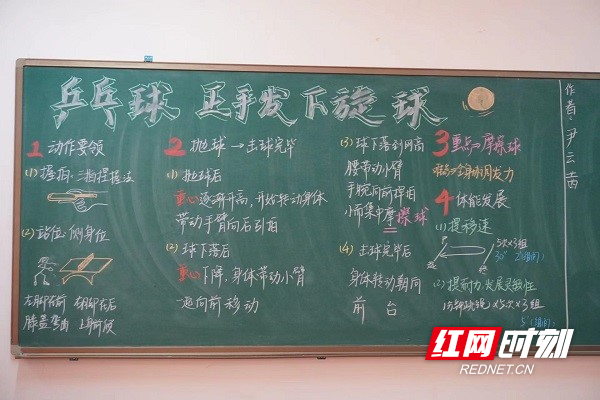 乒乓球 正手发下旋球
作者：尹云喆
1 动作要领
(1) 握拍：三指捏握法
(2) 站位：侧身位
左脚在前 右脚在后
膝盖弯曲 上身前倾
2 抛球→击球完毕
(1) 抛球后
重心逐渐升高，开始转动身体
带动手臂向后引拍
(2) 球下落后
重心下降，身体带动小臂
迎向前移动
(3) 球下落到网高
腰带动小臂
手腕向前挥拍
小而集中摩擦球
(4) 击球完毕后
身体转动朝向
前台
3 重点：摩擦球
难点：全身协调发力
4 体能发展
(1) 提移速
5次×3组
30"
(2) 提耐力，发展灵敏性
×5次×3组
红网时刻
REDNET.CN